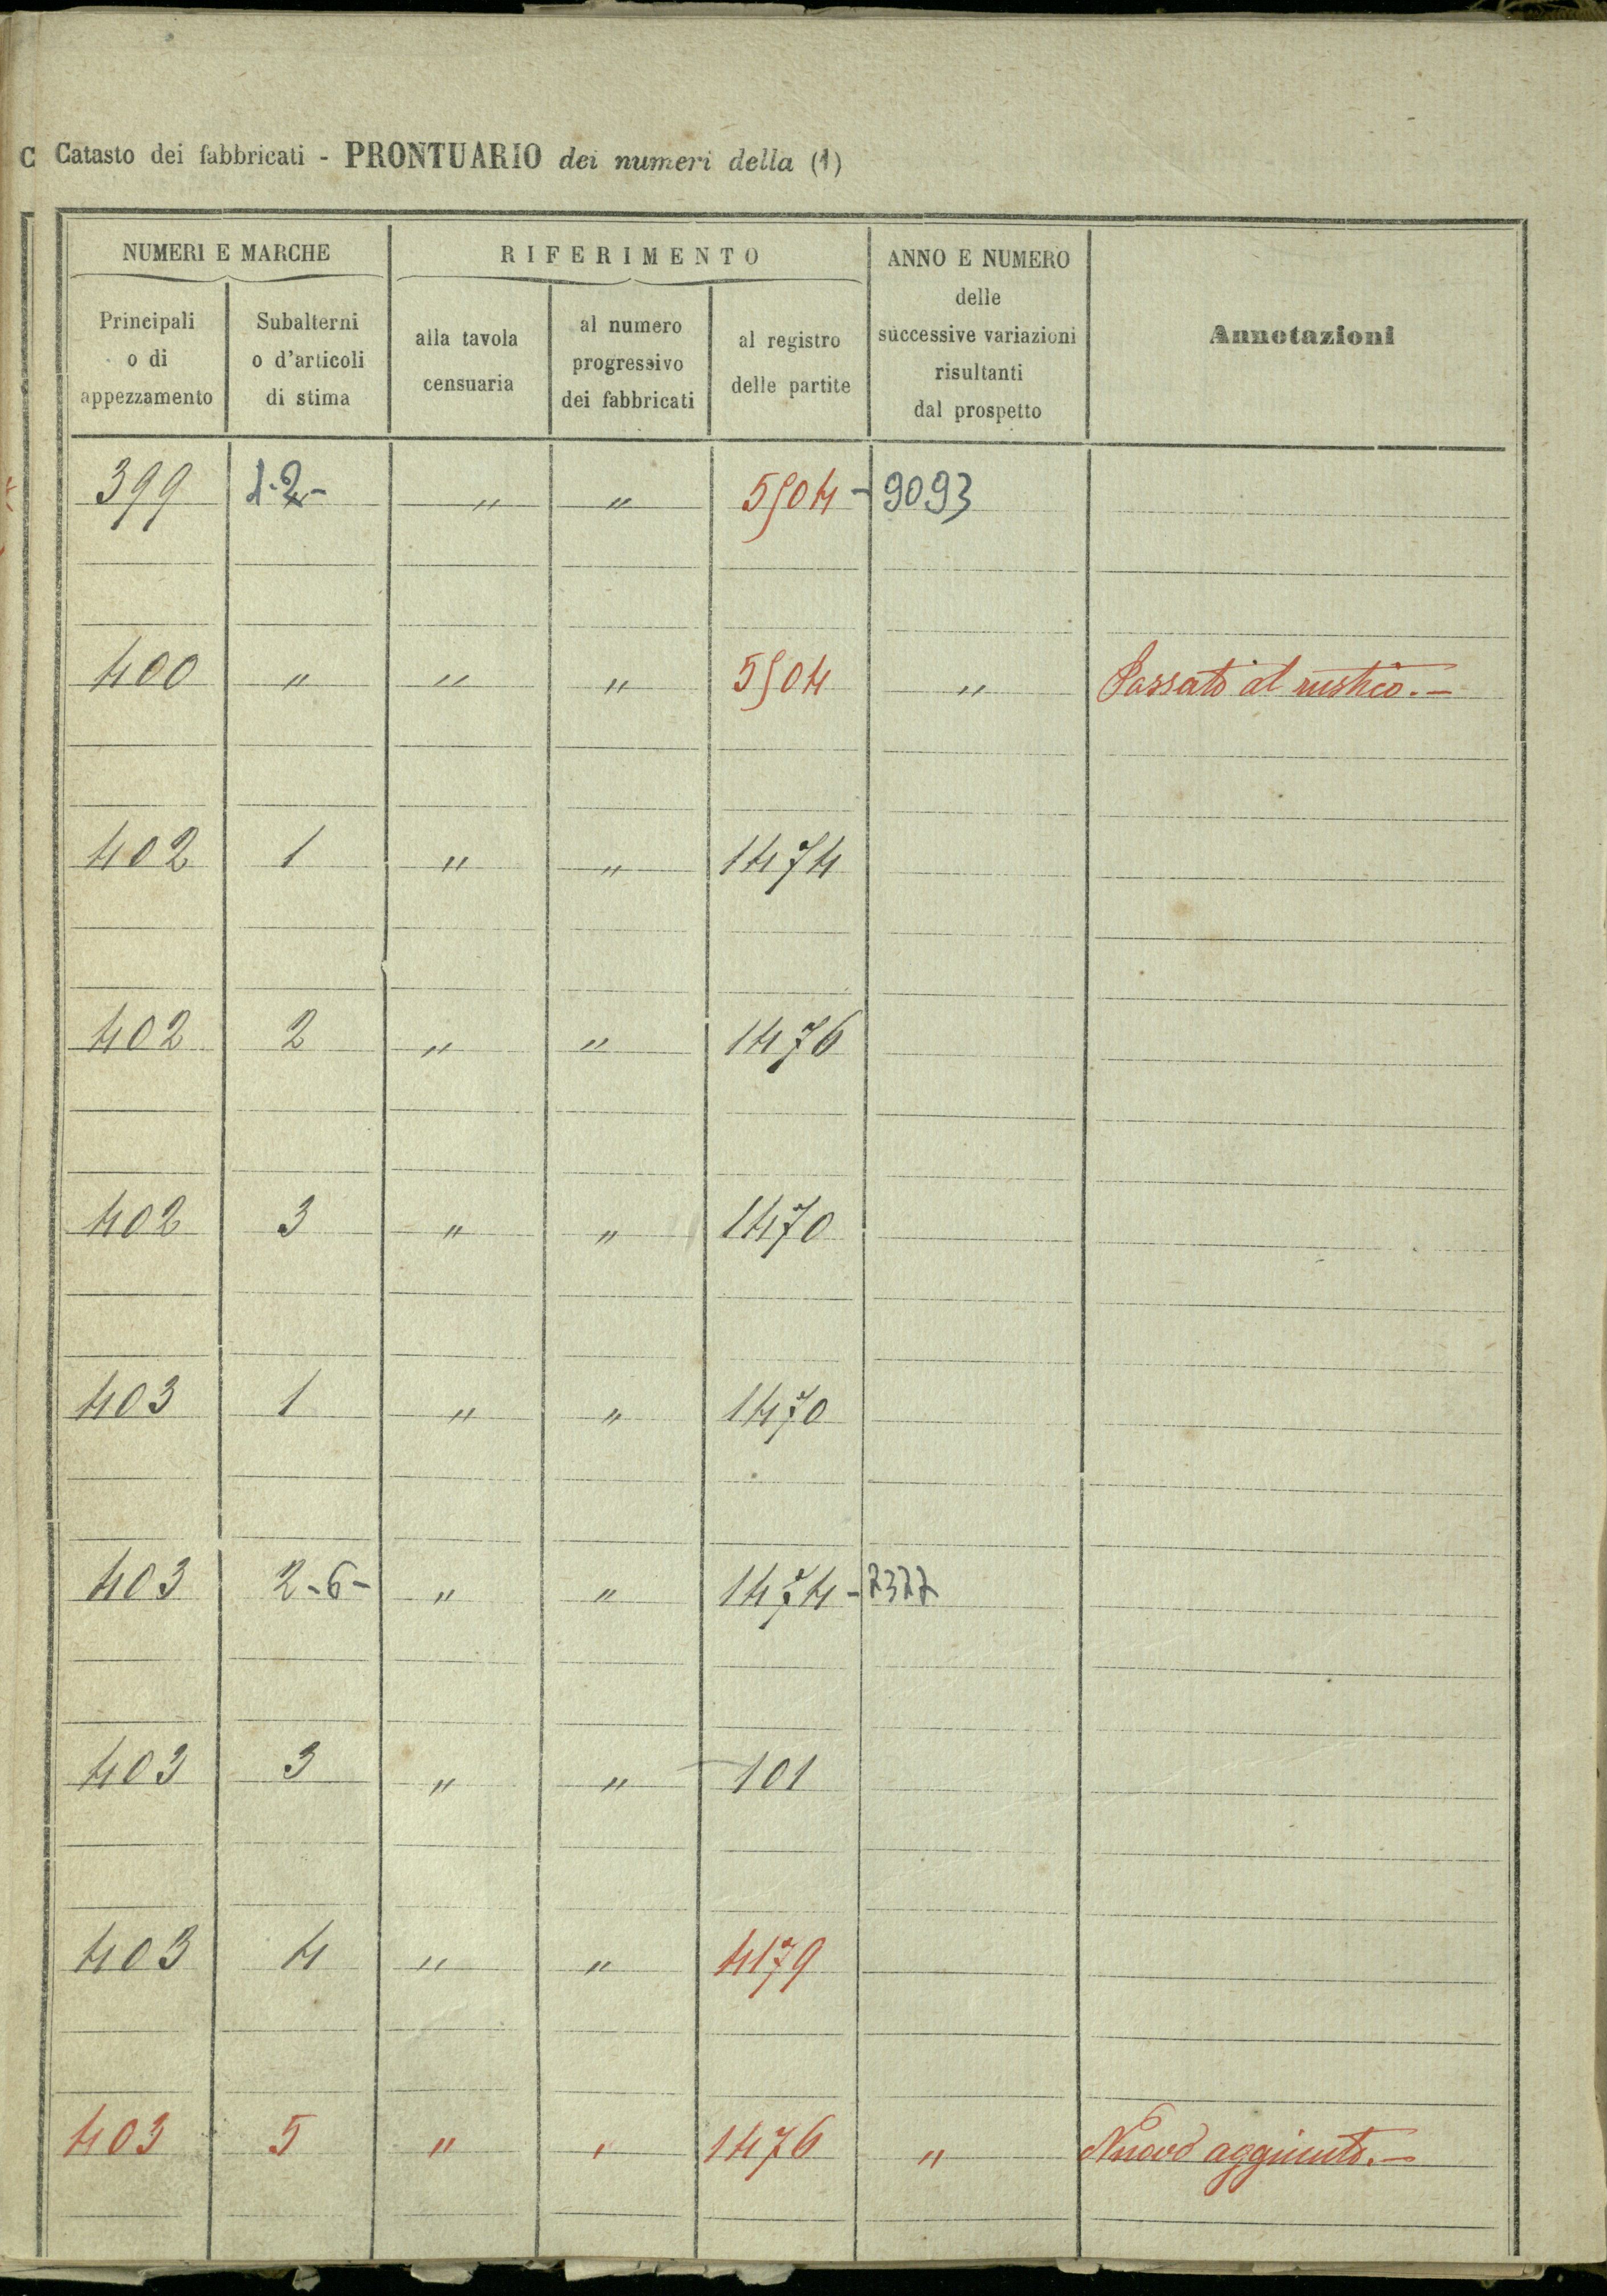 C Catasto dei fabbricati - PRONTUARIO dei numeri della (1)
NUMERI E MARCHE
RIFERIMENTO
ANNO E NUMERO
delle
successive variazioni
risultanti
dal prospetto
Annotazioni
Principali
o di
appezzamento
Subalterni
o d'articoli
di stima
alla tavola
censuaria
al numero
progressivo
dei fabbricati
al registro
delle partite
399 1-2- " " 5504 - 9093
400 " " " 5504 " Passato al rustico. -
402 1 " " 1474
402 2 " " 1476
402 3 " " 1470
403 1 " " 1470
403 2-6- " " 1474 -
403 3 " " 101
403 4 " " 4179
403 5 " " 1476 " Nuovo aggiunto. -